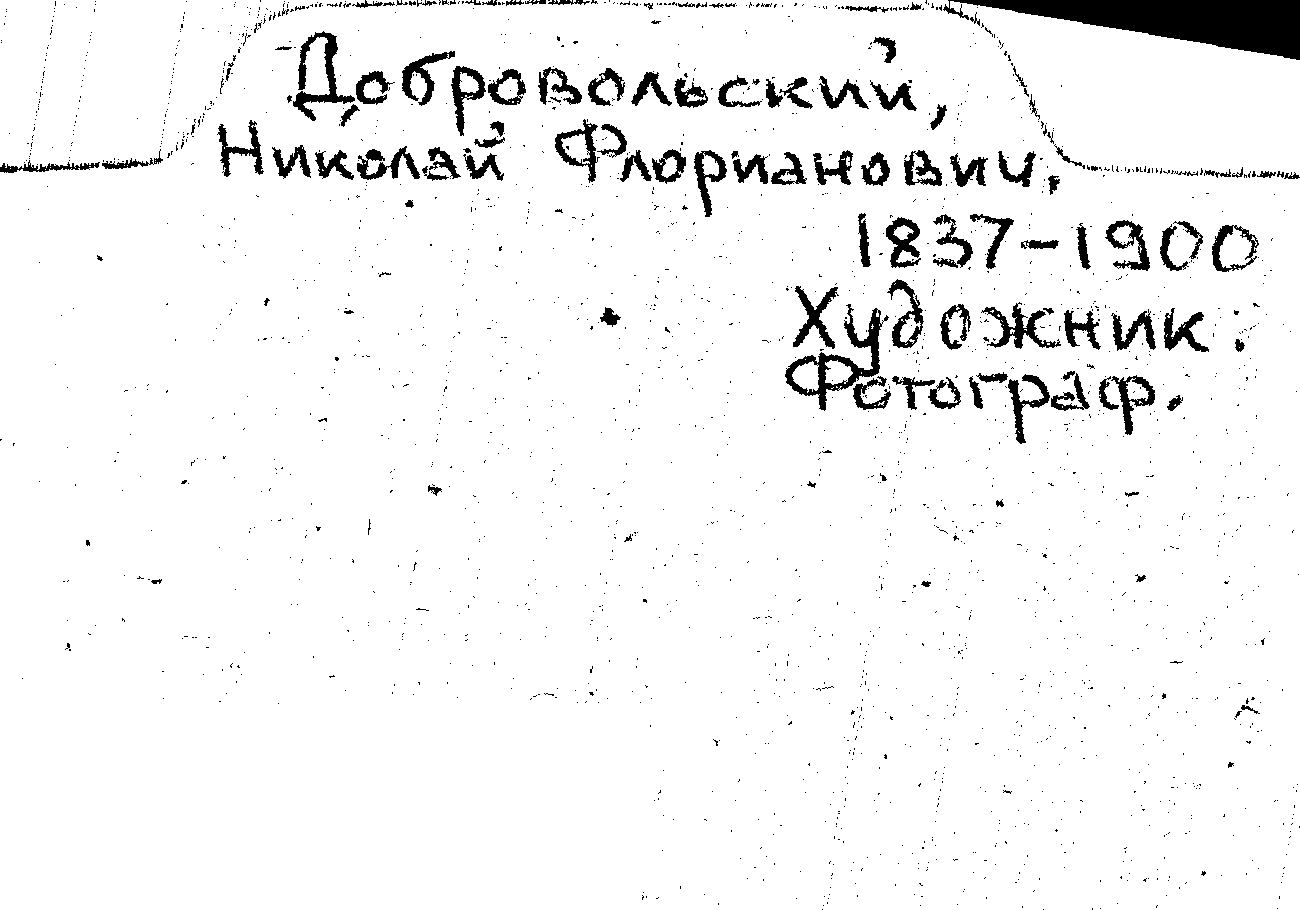 Добровольский,
Николай Флорианович.
1837-1900
Художник.
Фотограф.